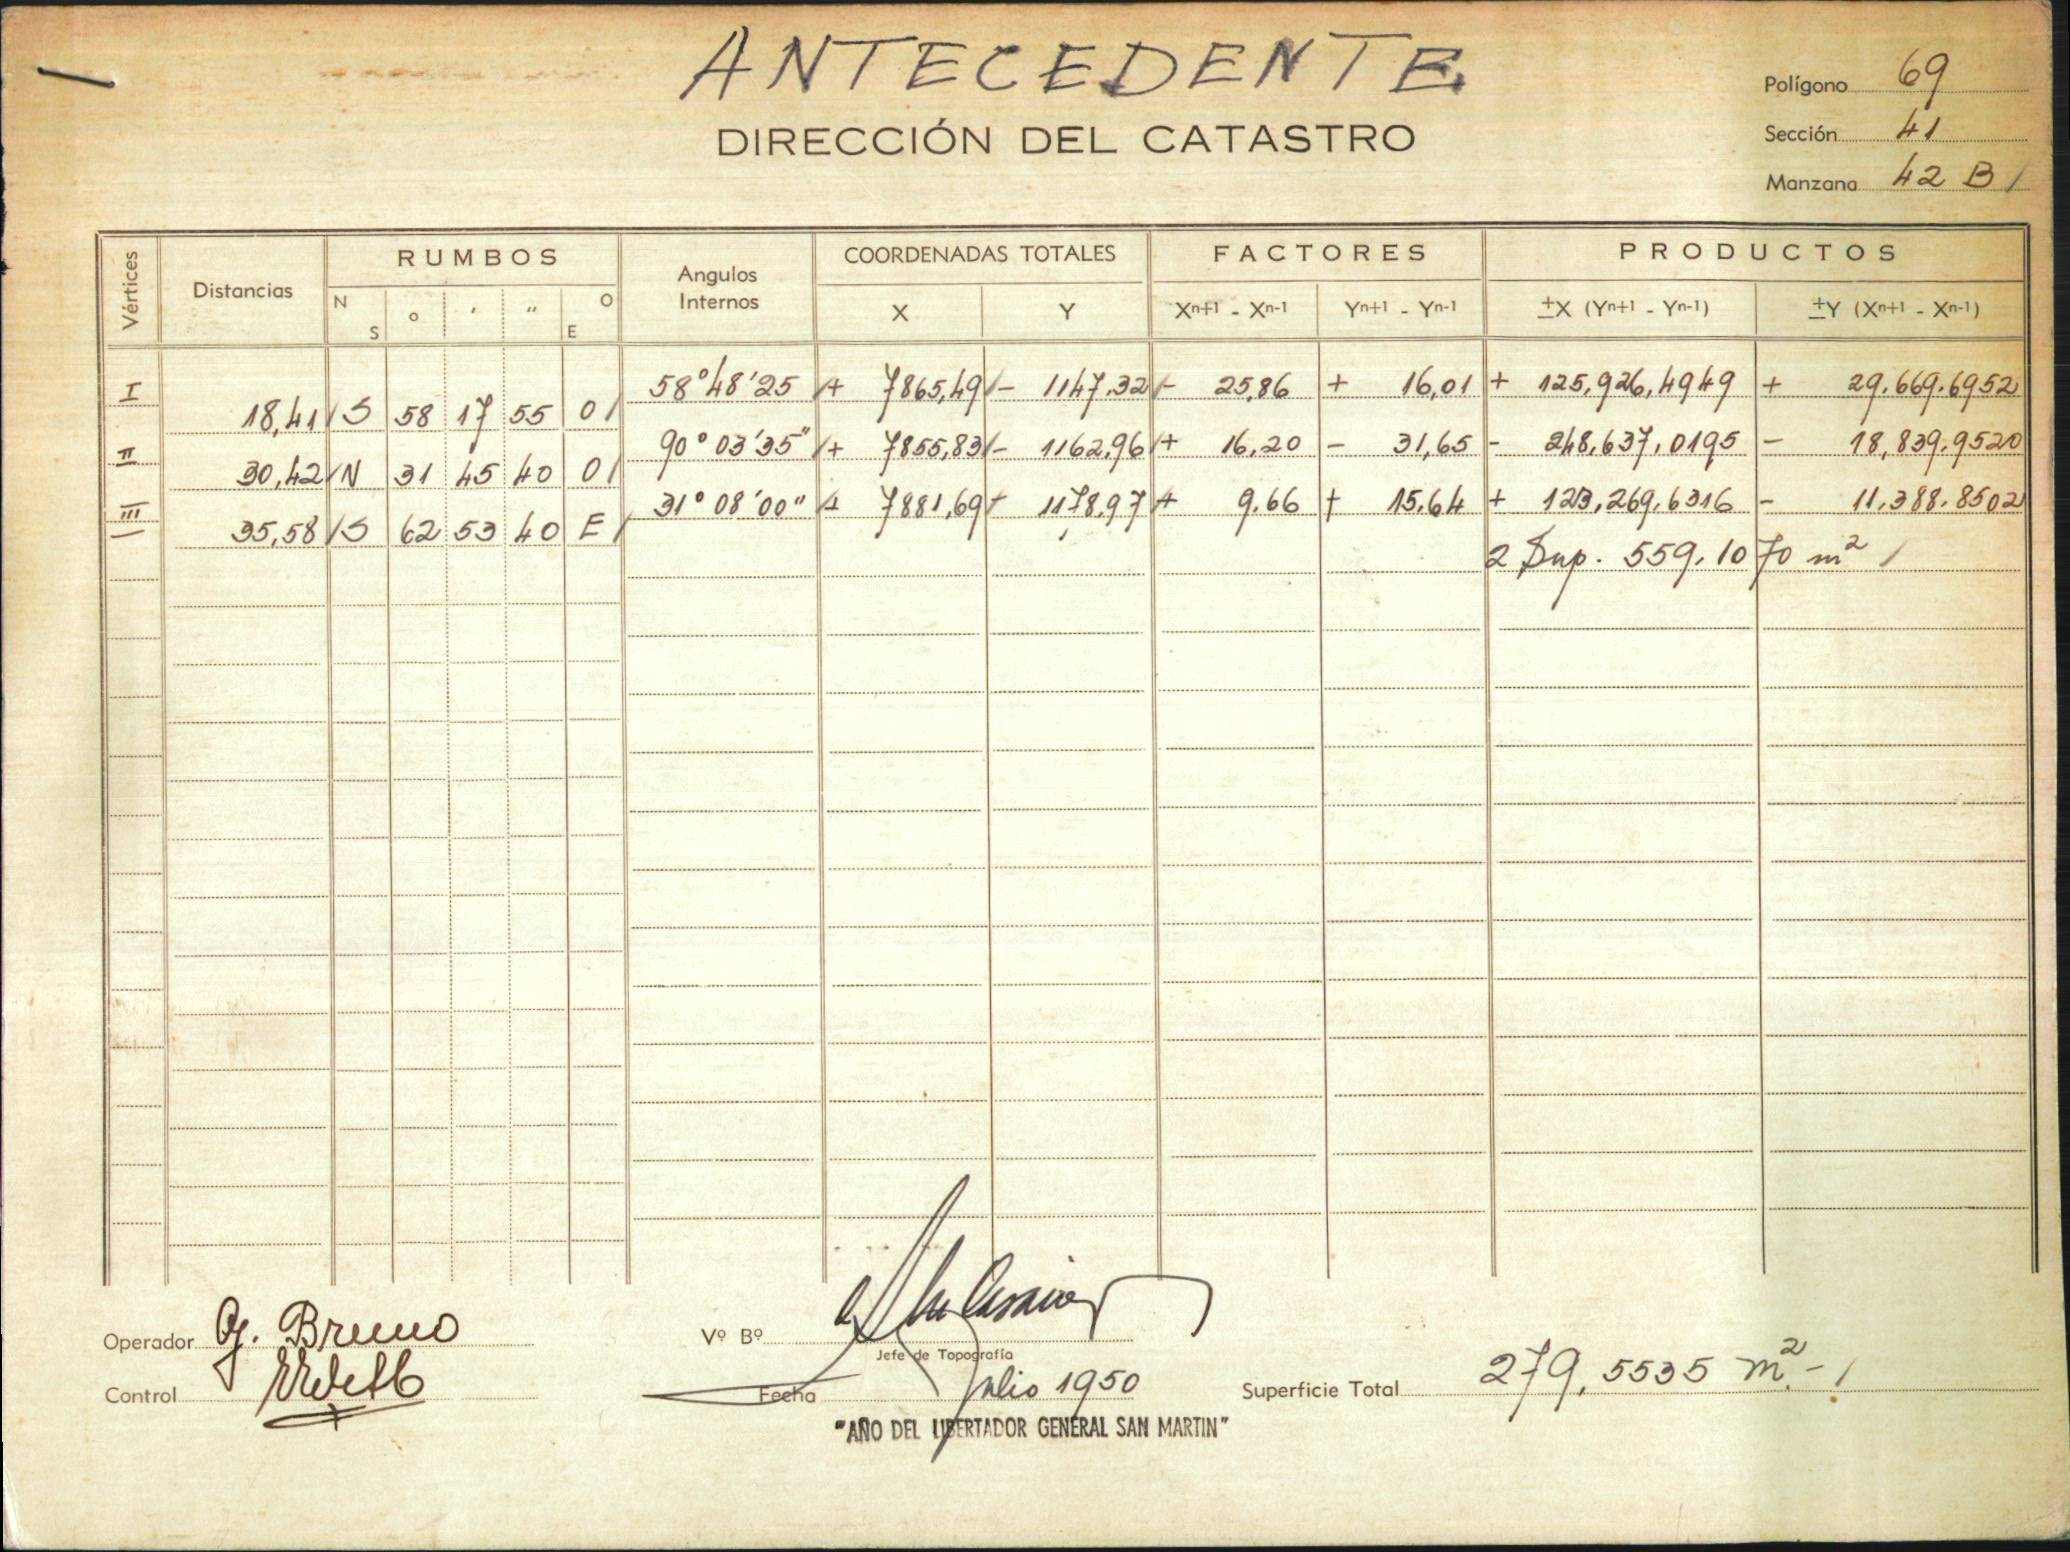 ANTECEDENTE
DIRECCIÓN DEL CATASTRO
Polígono 69
Sección 41
Manzana 42 B /
Vértices Distancias RUMBOS Angulos Internos COORDENADAS TOTALES FACTORES PRODUCTOS
N S ° ′ ″ O E X Y Xn+1 - Xn-1 Yn+1 - Yn-1 ±X (Yn+1 - Yn-1) ±Y (Xn+1 - Xn-1)
I 58°48'25 /+ 7865,49 /- 1147,32 /- 25,86 + 16,01 + 125,926,4949 + 29.669.6952
18,41 / S 58 17 55 O /
II 90° 03'35" /+ 7855,83 /- 1162,96 /+ 16,20 - 31,65 - 248,637,0195 - 18,839.9520
30,42 / N 31 45 40 O /
III 31° 08'00" /+ 7881,69 /- 1178,97 /+ 9,66 + 15,64 + 123,269,6316 - 11.388.8502
35,58 / S 62 53 40 E /
2 Sup. 559.1070 m² /
Operador G. Bruno
Control
Vº Bº
Jefe de Topografía
Fecha Julio 1950
"AÑO DEL LIBERTADOR GENERAL SAN MARTIN"
Superficie Total 279,5535 m².- /